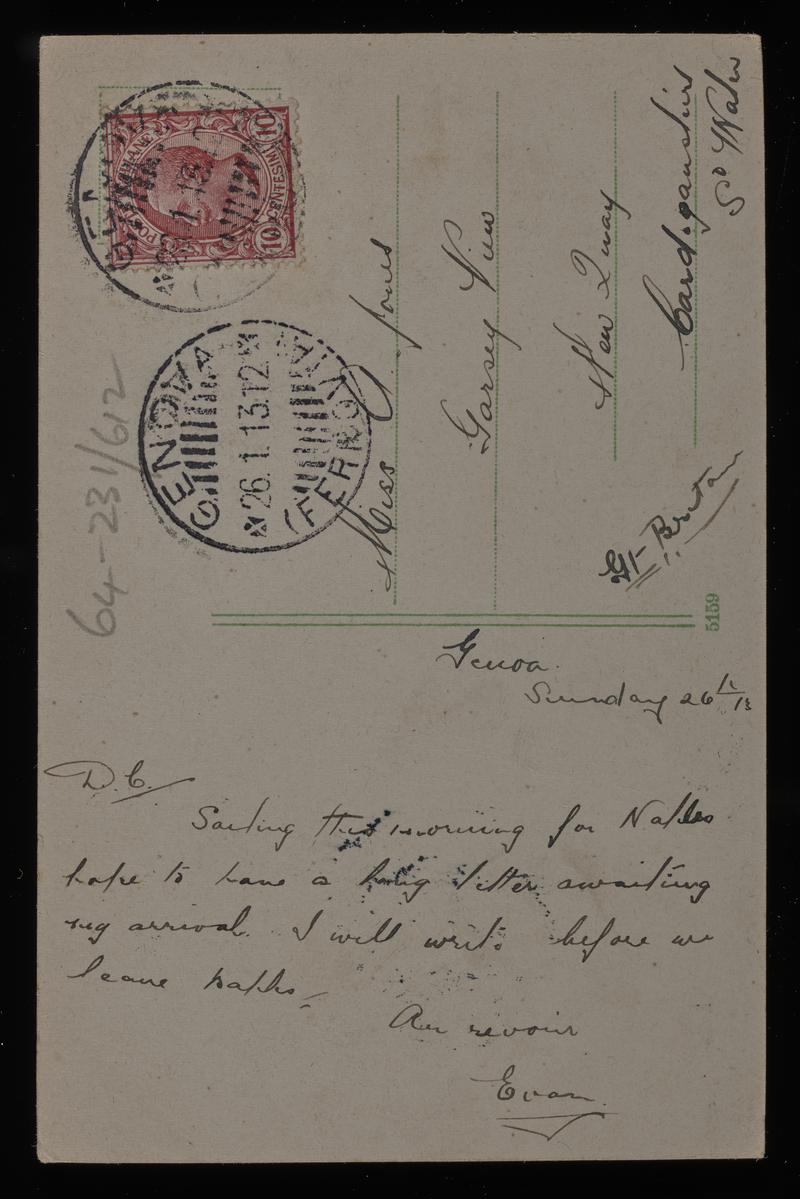 POSTE ITALIANE
10 CENTESIMI 10
GENOVA
26.1.13.12
(FERROVIA)
64-231/612
Miss A Jones
Garsey View
New Quay
Cardiganshire
So Wales
Gt Britain
5159
Genoa.
Sunday 26/1/13
D.C.
Sailing this morning for Naples
hope to have a long letter awaiting
my arrival. I will write before we
leave Naples
Au revoir
Evan